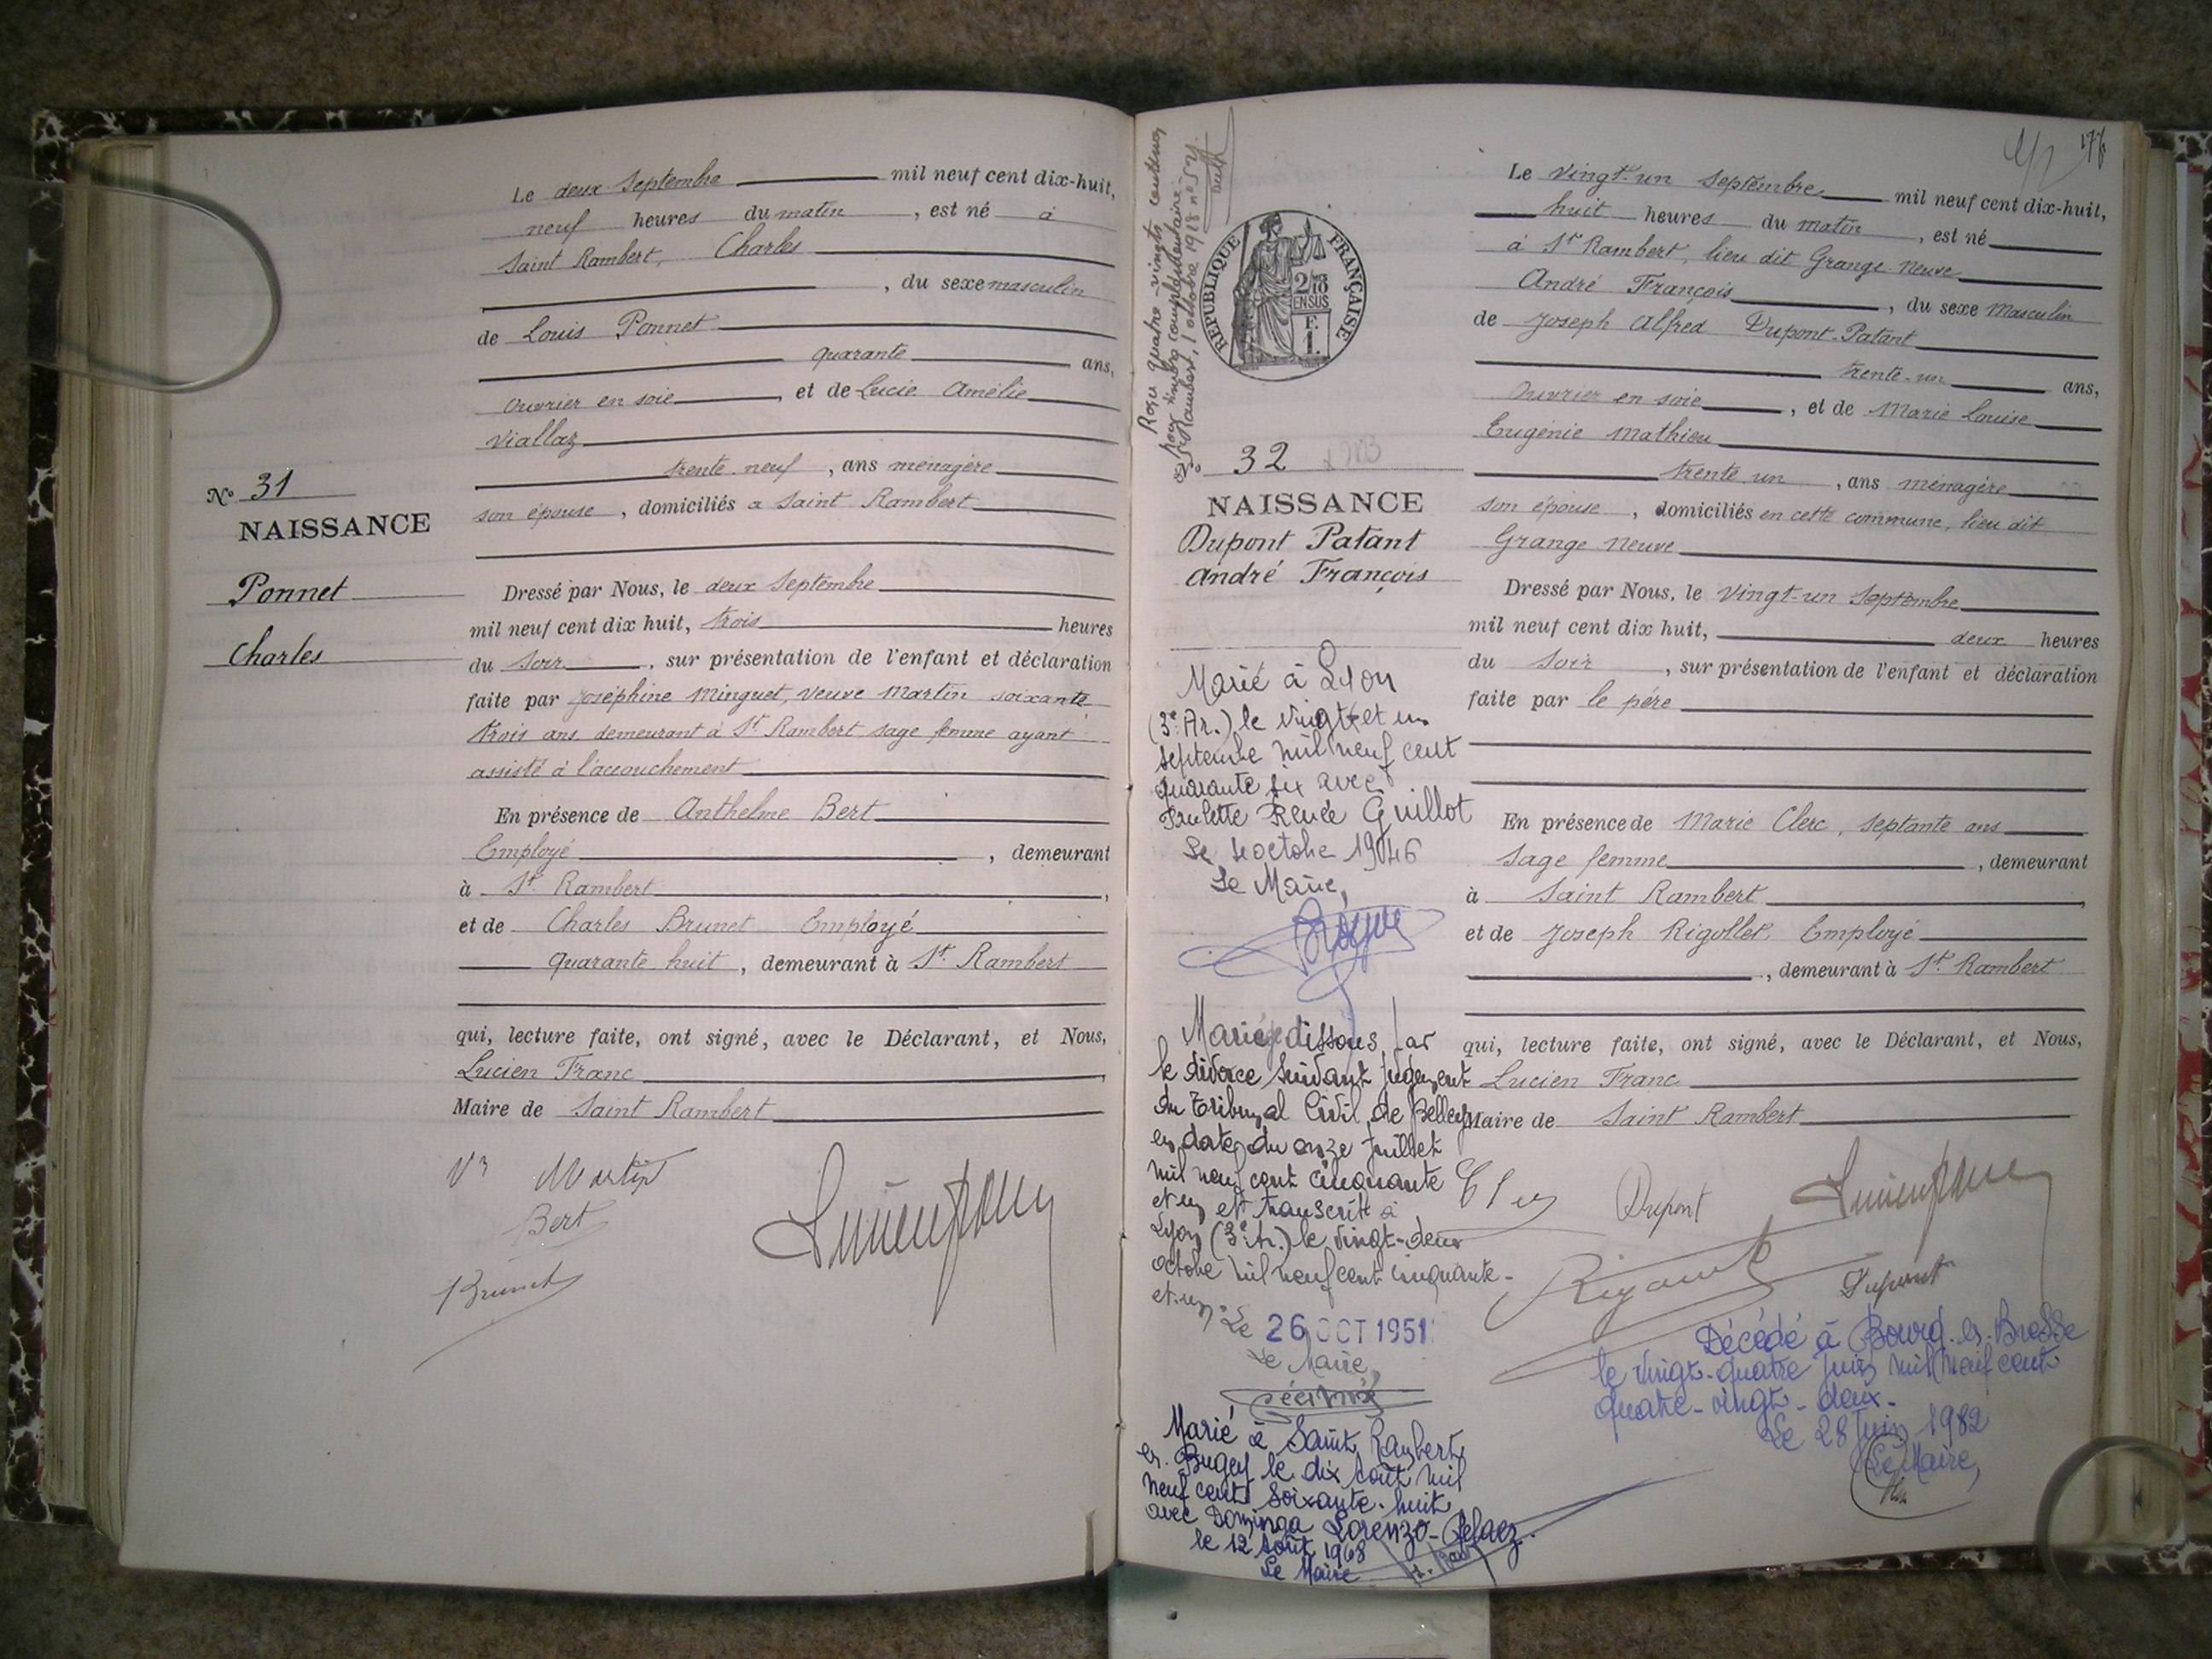 Le deux Septembre mil neuf cent dix-huit,
neuf heures du matin, est né à
Saint Rambert, Charles
, du sexe masculin
de Louis Ponnet
quarante ans,
ouvrier en soie, et de Lucie Amélie
Viallaz
trente neuf, ans ménagère
son épouse, domiciliés a Saint Rambert
No 31
NAISSANCE
Ponnet
Charles
Dressé par Nous, le deux Septembre
mil neuf cent dix huit, trois heures
du Soir, sur présentation de l'enfant et déclaration
faite par Joséphine Minguet, veuve Martin soixante
trois ans, demeurant à St Rambert sage femme ayant
assisté à l'accouchement
En présence de Anthelme Bert
Employé, demeurant
à St. Rambert,
et de Charles Brunet Employé
quarante huit, demeurant à St. Rambert
qui, lecture faite, ont signé, avec le Déclarant, et Nous,
Lucien Franc,
Maire de Saint Rambert
Vve Martin
Bert
Brunet
Lucien Franc
176
Reçu quatre-vingts centimes
pour timbre complémentaire
St Rambert, 1 octobre 1918 no 54
RÉPUBLIQUE FRANÇAISE
2/10
EN SUS
F.
1.
No 32
NAISSANCE
Dupont Patant
André François
Le vingt-un Septembre mil neuf cent dix-huit,
huit heures du matin, est né
à St Rambert, lieu dit Grange Neuve
André François, du sexe Masculin
de Joseph Alfred Dupont-Patant
trente-un ans,
Ouvrier en soie, et de Marie Louise
Eugénie Mathieu
trente un, ans ménagère
son épouse, domiciliés en cette commune, lieu dit
Grange Neuve
Dressé par Nous, le vingt-un Septembre
mil neuf cent dix huit, deux heures
du Soir, sur présentation de l'enfant et déclaration
faite par le père
En présence de Marie Clerc, septante ans
sage femme, demeurant
à Saint Rambert,
et de Joseph Rigollet, Employé
, demeurant à St. Rambert
qui, lecture faite, ont signé, avec le Déclarant, et Nous,
Lucien Franc
Maire de Saint Rambert
Dupont
Lucien Franc
Dupont
Marié à Lyon
(3e. Ar.) le vingt et un
septembre mil neuf cent
quarante six avec
Paulette Renée Guillot
Le octobre 1946
Le Maire,
Mariage dissous par
le divorce suivant jugement
du Tribunal Civil de Belley
en date du onze juillet
mil neuf cent cinquante
et un et transcrit à
Lyon (3e. Ar.) le vingt-deux
octobre mil neuf cent cinquante-
et-un. Le 26 OCT 1951
Le Maire,
Marié à Saint Rambert
en Bugey le dix août mil
neuf cent soixante-huit
avec Dominga Lorenzo-Pelaez.
le 12 Août 1968
Le Maire
Décédé à Bourg-en-Bresse
le vingt-quatre juin mil neuf cent
quatre-vingt-deux.
Le 28 Juin 1982
Le Maire,